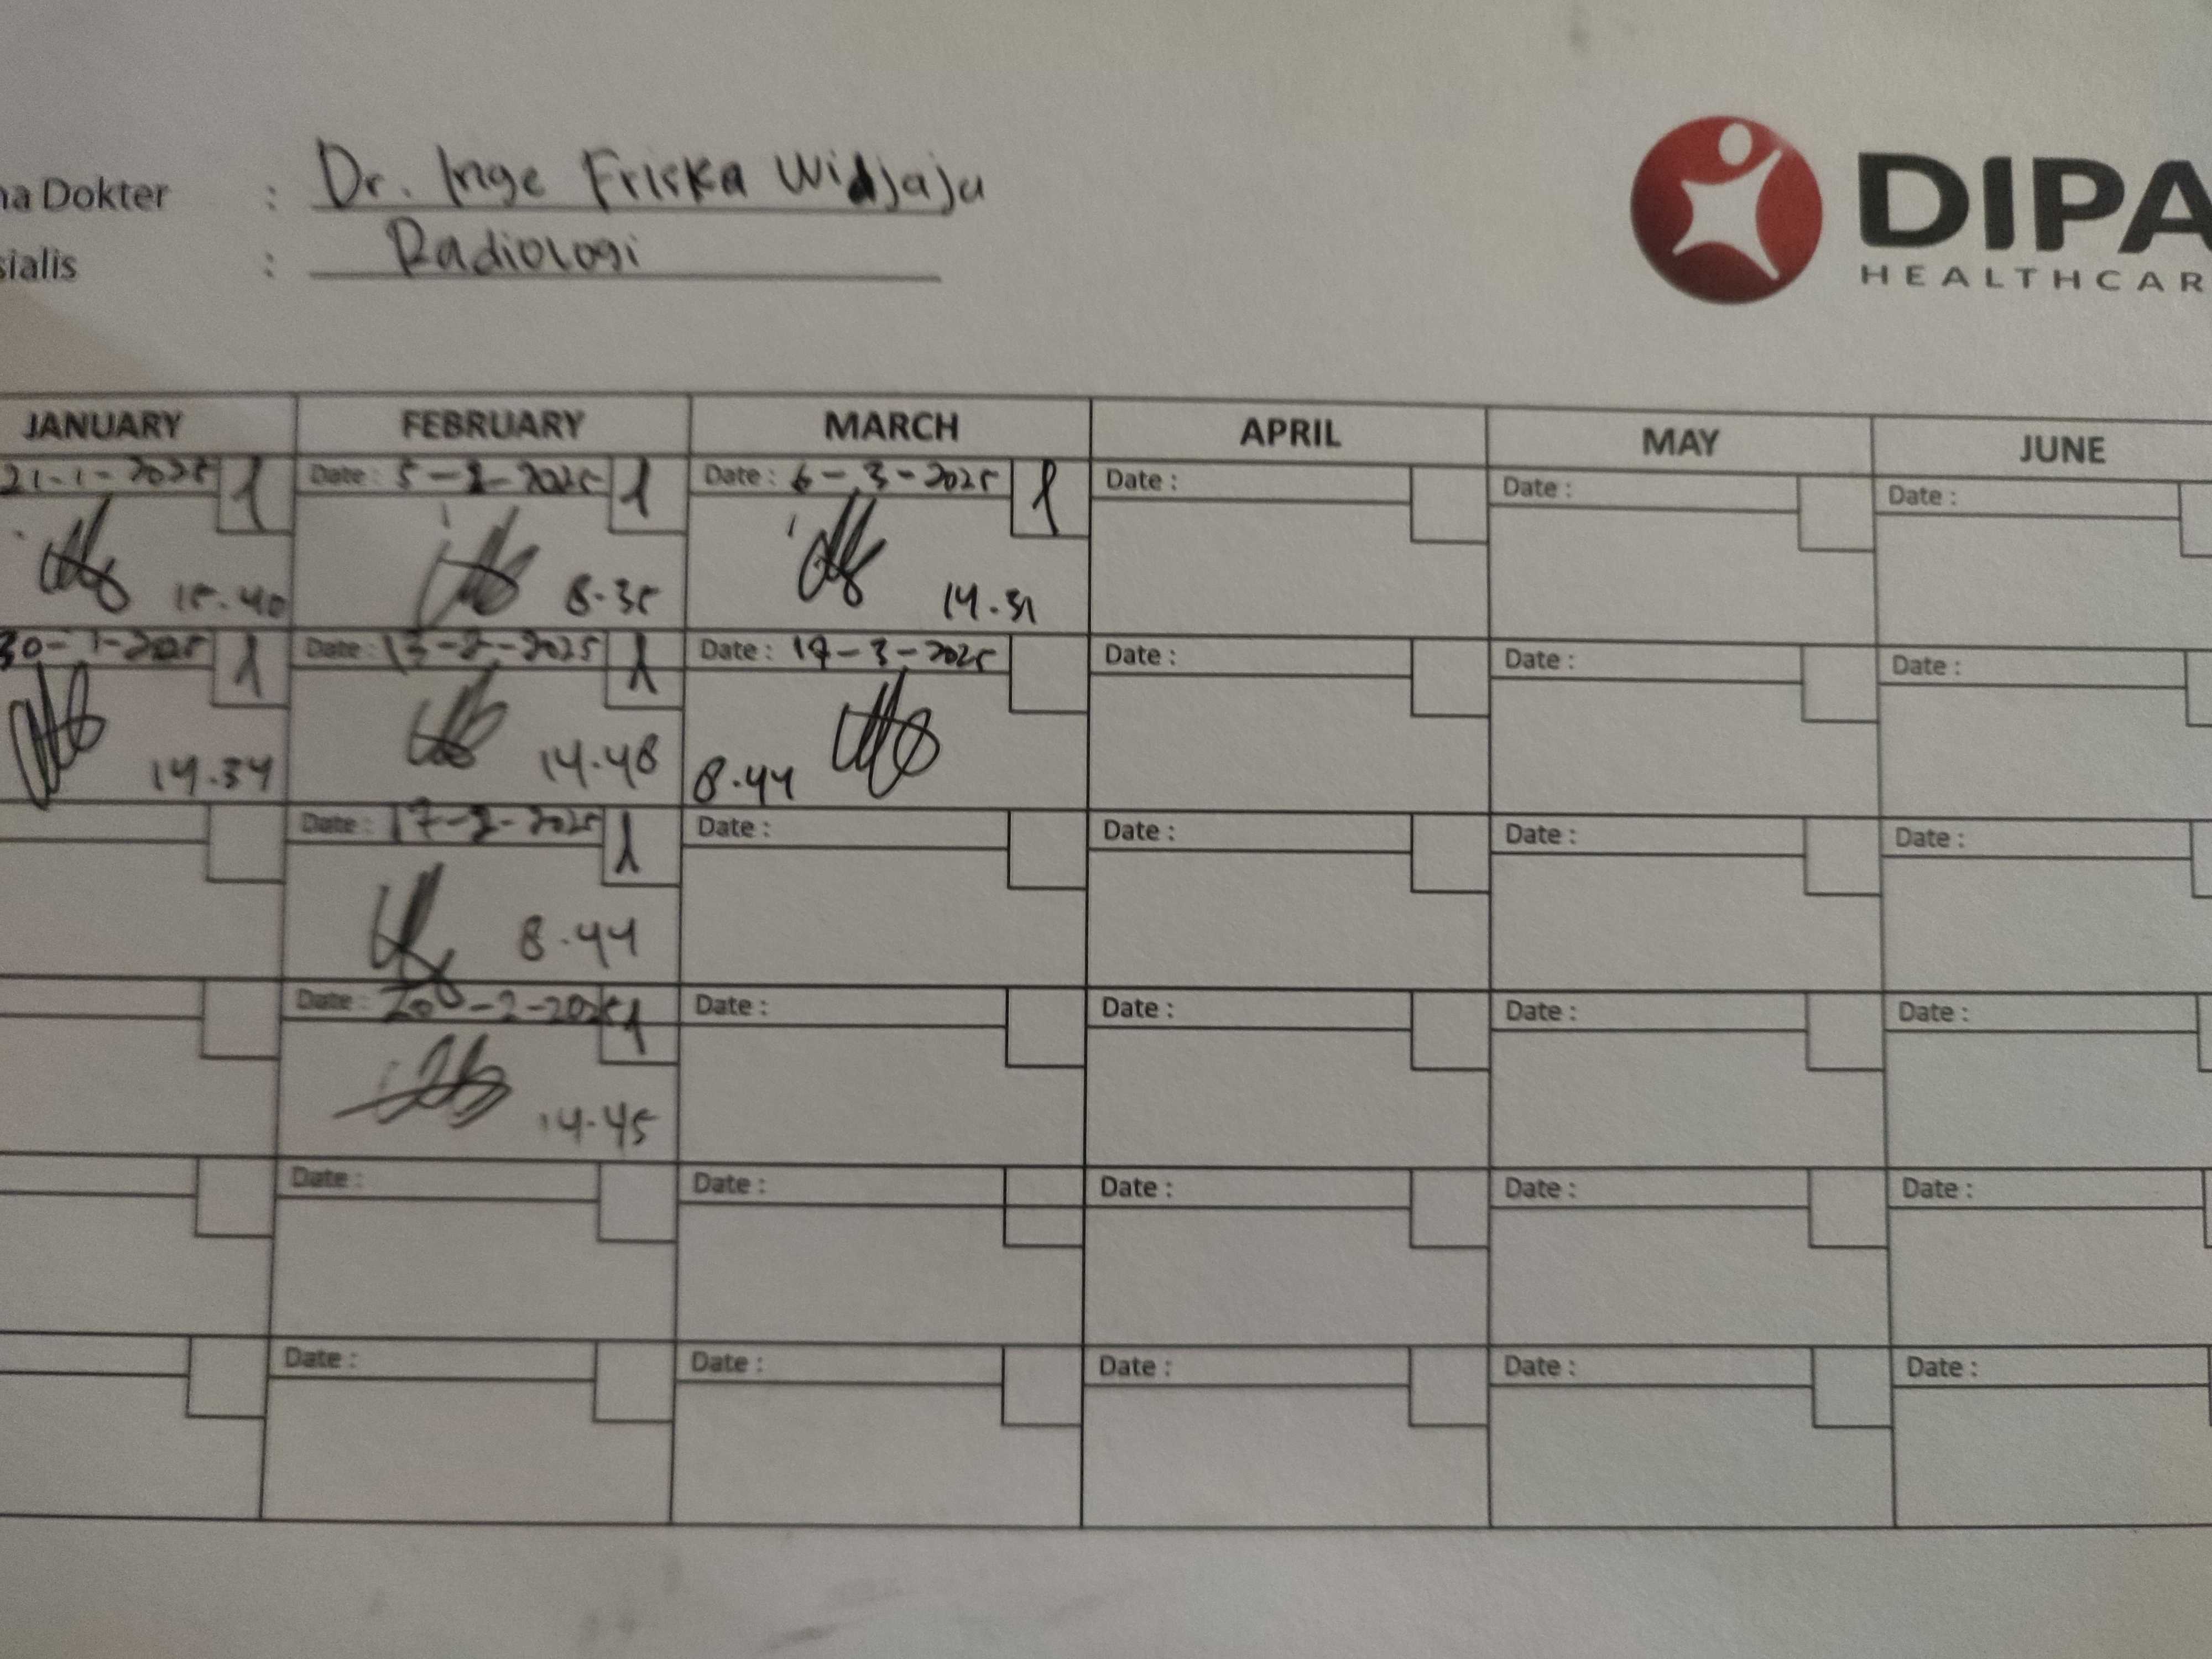 Dokter : Dr. Inge Friska Widjaja
: Radiologi
DIPA
HEALTHCAR
JANUARY FEBRUARY MARCH APRIL MAY JUNE
21-1-2025 Date : 5-2-2025 Date : 6-3-2025 Date : Date : Date :
15.40 8.35 14.31
30-1-2025 Date : 13-2-2025 Date : Date : Date : Date :
14.34 14.48 8.44
Date : 17-2-2025 Date : Date : Date : Date :
8.44
Date : 20-2-2025 Date : Date : Date : Date :
14.45
Date : Date : Date : Date : Date :
Date : Date : Date : Date : Date :